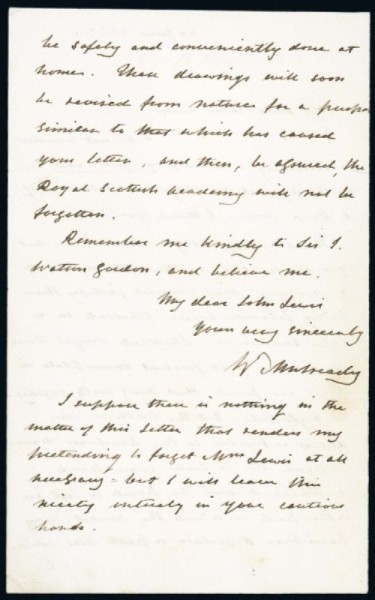 be safely and conveniently done at
home. These drawings will soon
be revised from nature for a purpose
similar to that which has caused
your letter, and then, be assured, the
Royal Scottish Academy will not be
forgotten.
Remember me kindly to Sir J.
Watson Gordon, and believe me,
My dear John Lewis
Yours very sincerely
W Mulready
I suppose there is nothing in the
matter of this letter that renders my
pretending to forget Mrs Lewis at all
necessary - but I will leave this
nicety entirely in your cautious
hands.